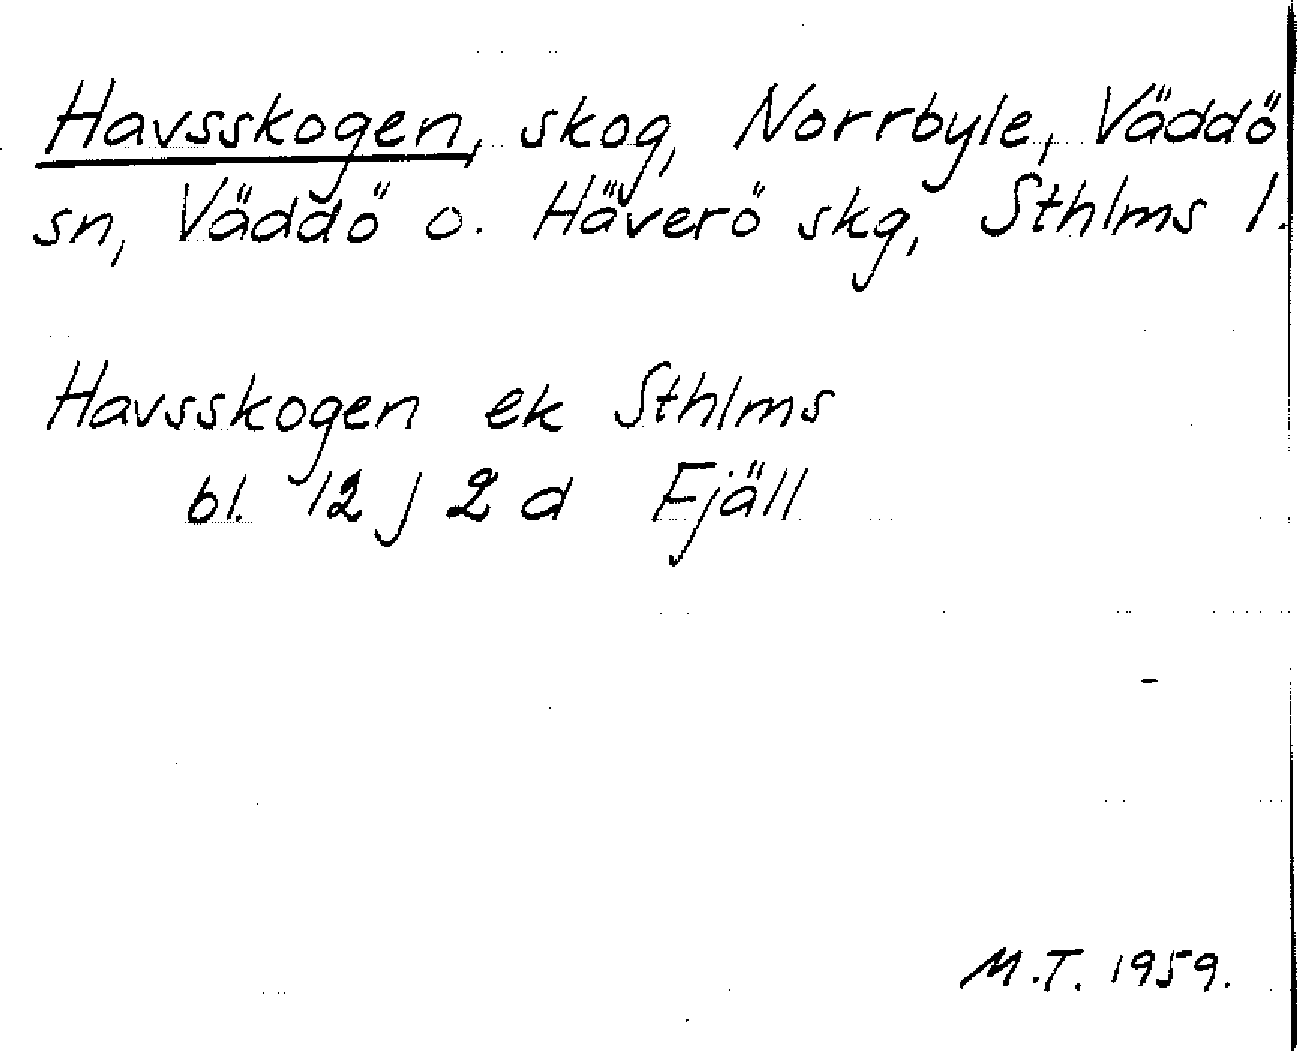 Havsskogen, skog, Norrbyle, Väddö
sn, Väddö o. Häverö skg, Sthlms l.
Havsskogen ek Sthlms
bl. 12 j 2 d Fjäll
M.T. 1959.